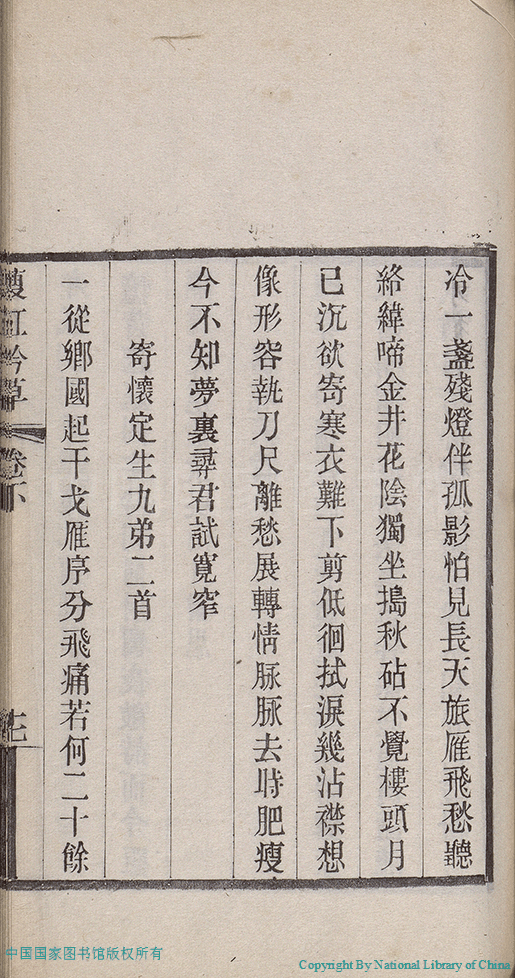 冷一盞殘燈伴孤影怕見長天旅雁飛愁聽
絡緯啼金井花陰獨坐搗秋砧不覺樓頭月
已沉欲寄寒衣難下剪低徊拭淚幾沾襟想
像形容執刀尺離愁展轉情脈脈去時肥瘦
今不知夢裏尋君試寬窄
寄懷定生九弟二首
一從鄉國起干戈雁序分飛痛若何二十餘
吟草
卷下
中国国家图书馆版权所有
Copyright By National Library of China